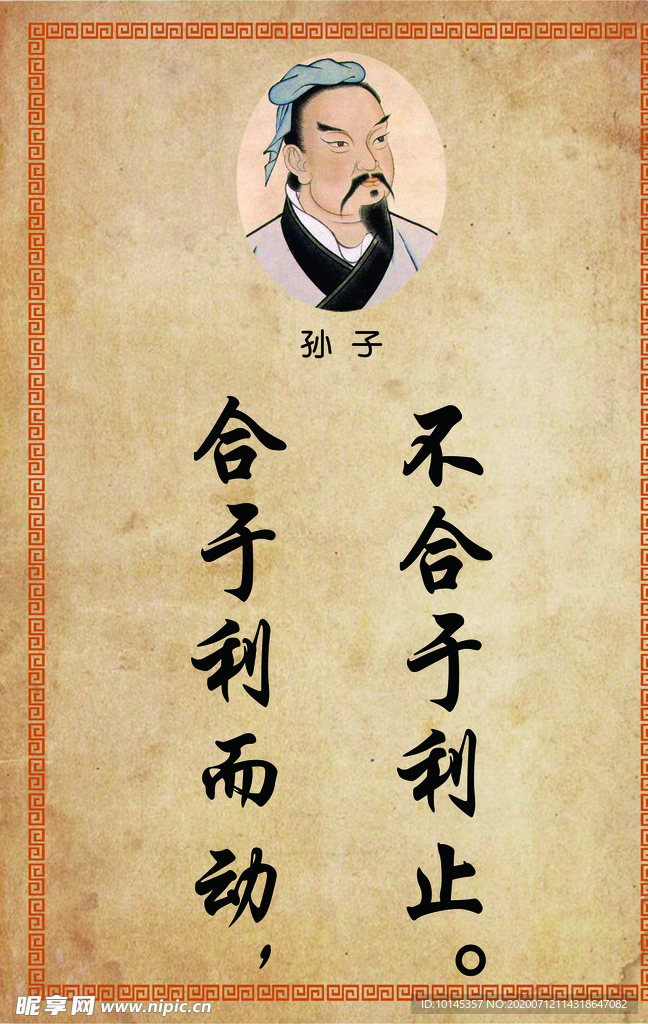 孙子
合于利而动，
不合于利止。
昵享网 www.nipic.cn
ID:10145357 NO:20200712114318647082